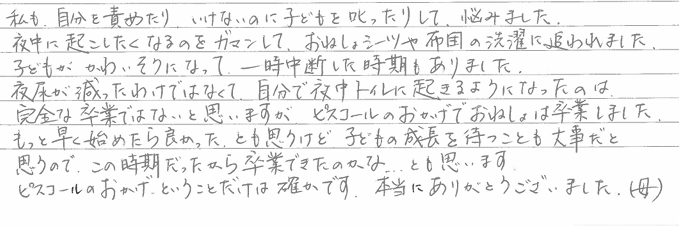 私も、自分を責めたり、いけないのに子どもを叱ったりして、悩みました。
夜中に起こしたくなるのをガマンして、おねしょシーツや布団の洗濯に追われました。
子どもが かわいそうになって、一時中断した時期もありました。
夜尿が減ったわけではなくて、自分で夜中トイレに起きるようになったのは、
完全な卒業ではないと思いますが、ピスコールのおかげでおねしょは卒業しました。
もっと早く始めたら良かった、とも思うけど 子どもの成長を待つことも大事だと
思うので、この時期だったから卒業できたのかな…とも思います。
ピスコールのおかげ、ということだけは確かです。本当にありがとうございました。(母)